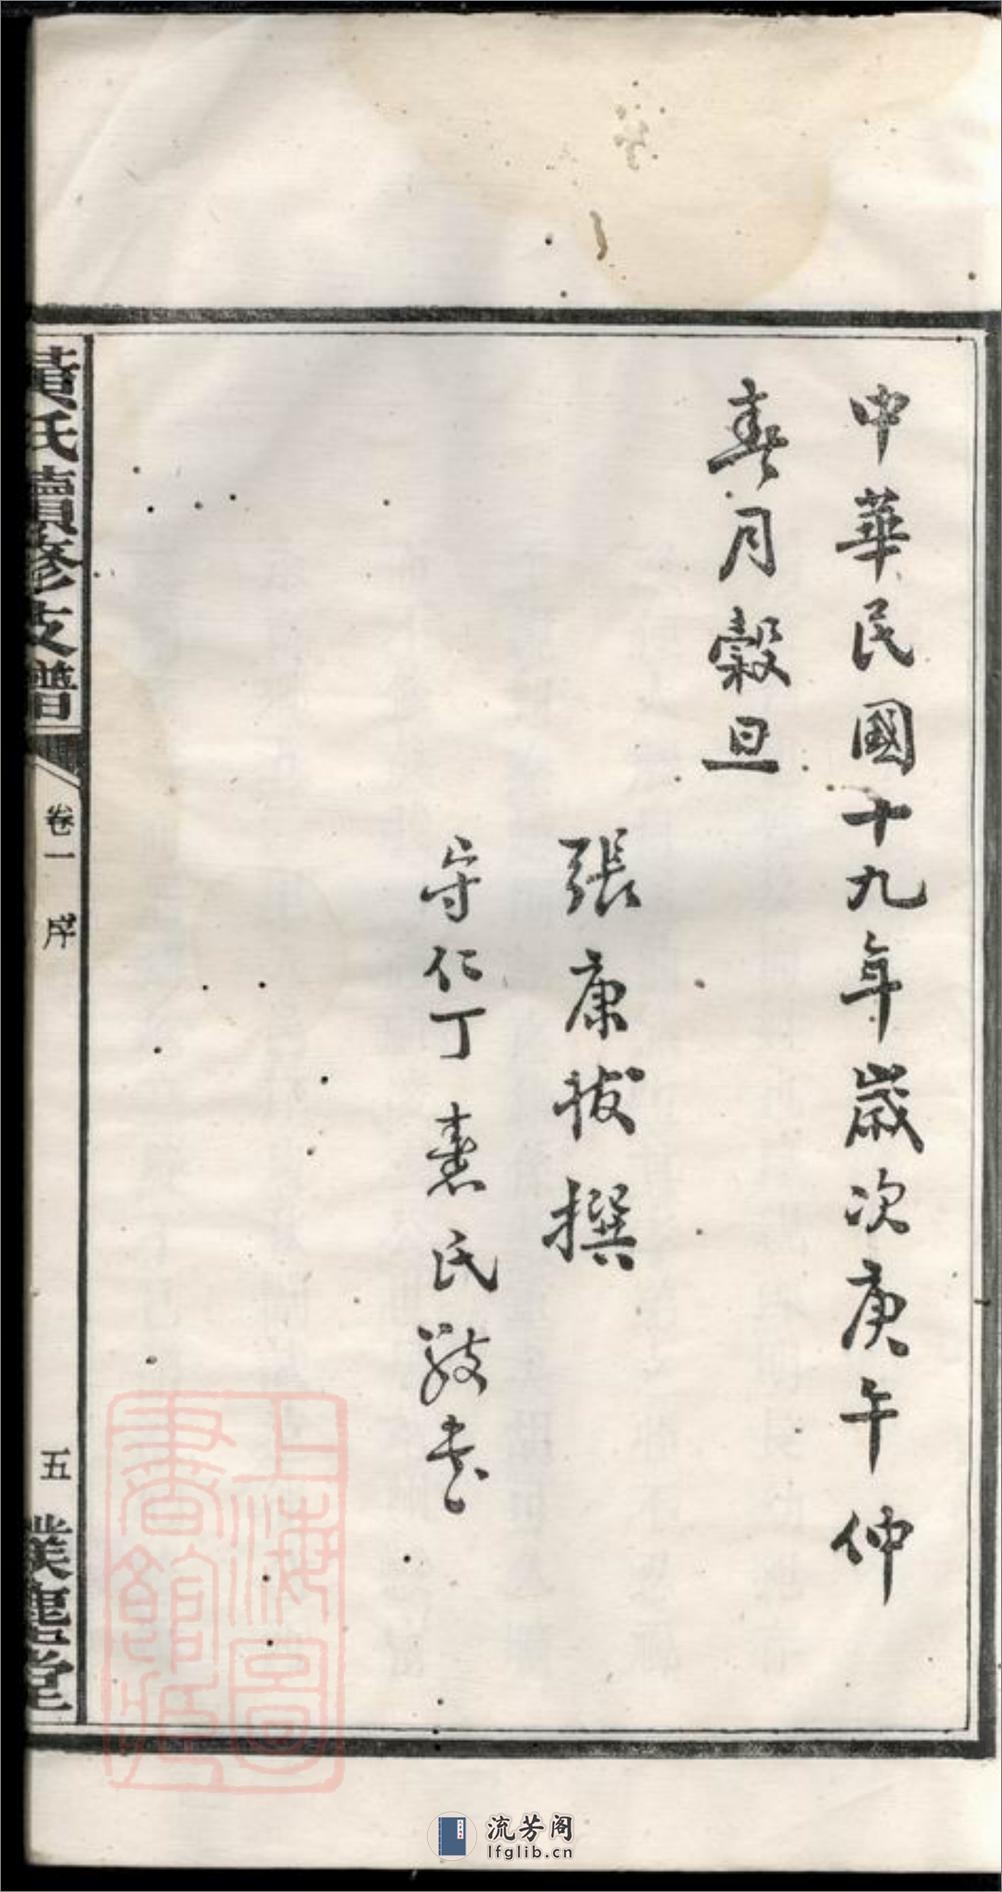 中華民國十九年歲次庚午仲
春月穀旦
張康拔撰
守仁丁憙氏敬書
黃氏續修支譜
卷一 序
五
樸廛堂
上海圖
書館藏
流芳阁
lfglib.cn